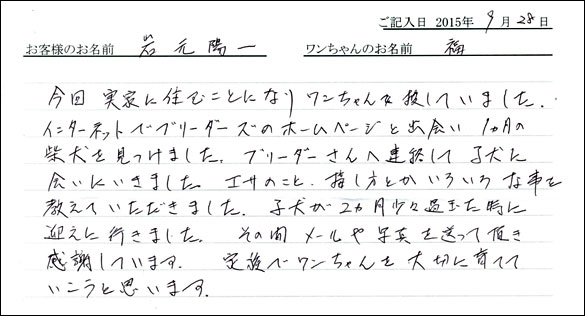 ご記入日 2015年 9月 28日
お客様のお名前 岩元陽一 ワンちゃんのお名前 福
今回 実家に住むことになり ワンちゃんを捜していました.
インターネットでブリーダーズのホームページと出会い 1ヵ月の
柴犬を見つけました. ブリーダーさんへ連絡して 子犬に
会いにいきました. エサのこと、 し方とかいろいろな事を
教えていただきました. 子犬が2ヵ月少々過ぎた時に
迎えに行きました. その間 メールや写真を送って頂き
感謝しています. 家族でワンちゃんを大切に育てて
いこうと思います.